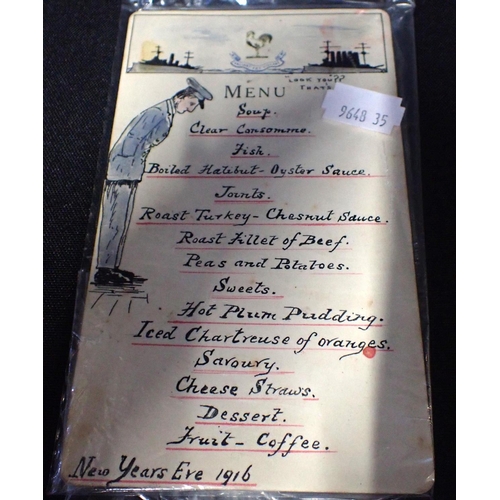 "LOOK YOU??
THAT
MENU
9648 35
Soup.
Clear Consomme.
Fish.
Boiled Halibut - Oyster Sauce.
Joints.
Roast Turkey - Chesnut Sauce.
Roast Fillet of Beef.
Peas and Potatoes.
Sweets.
Hot Plum Pudding.
Iced Chartreuse of oranges.
Savoury.
Cheese Straws.
Dessert.
Fruit - Coffee.
New Years Eve 1916